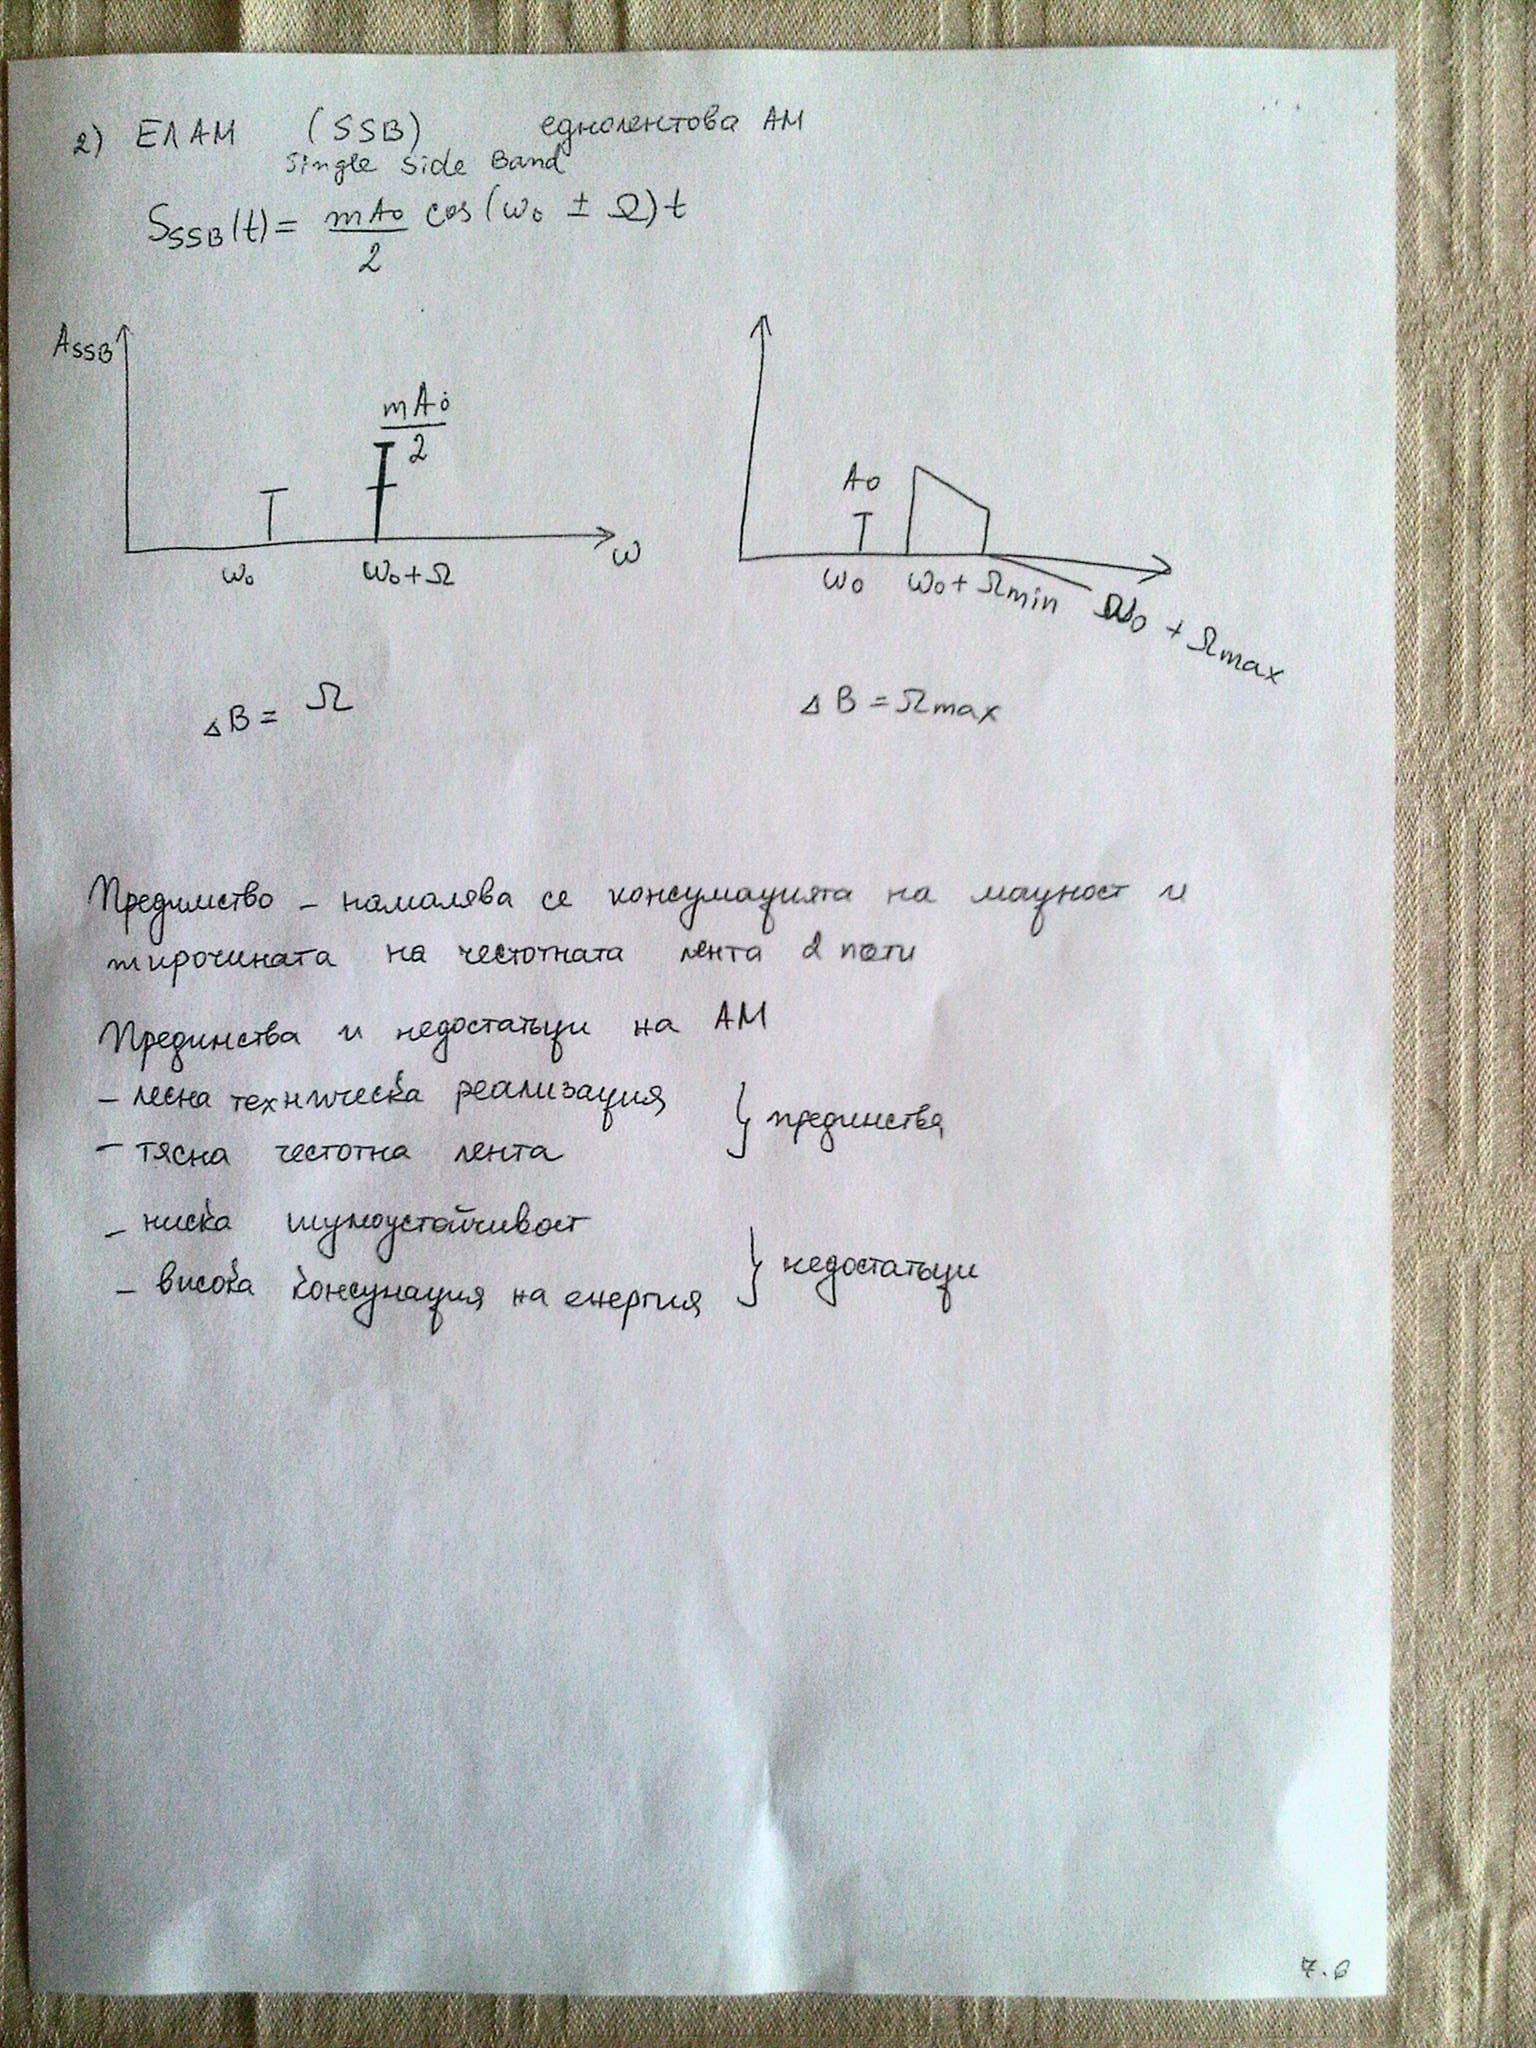 2) ЕЛАМ (SSB) еднолентова АМ
Single Side Band
S_SSB(t) = mA₀/2 cos(ω₀ ± Ω)t
A_SSB
mA₀/2
ω₀ ω₀+Ω ω
A₀
ω₀ ω₀+Ωmin ω₀ + Ωmax
ΔB = Ω
ΔB = Ωmax
Предимство – намалява се консумацията на мощност и
широчината на честотната лента 2 пъти
Прединства и недостатъци на АМ
– лесна техническа реализация
– тясна честотна лента
} прединства
– ниска шумоустойчивост
– висока консунация на енергия
} недостатъци
7.6